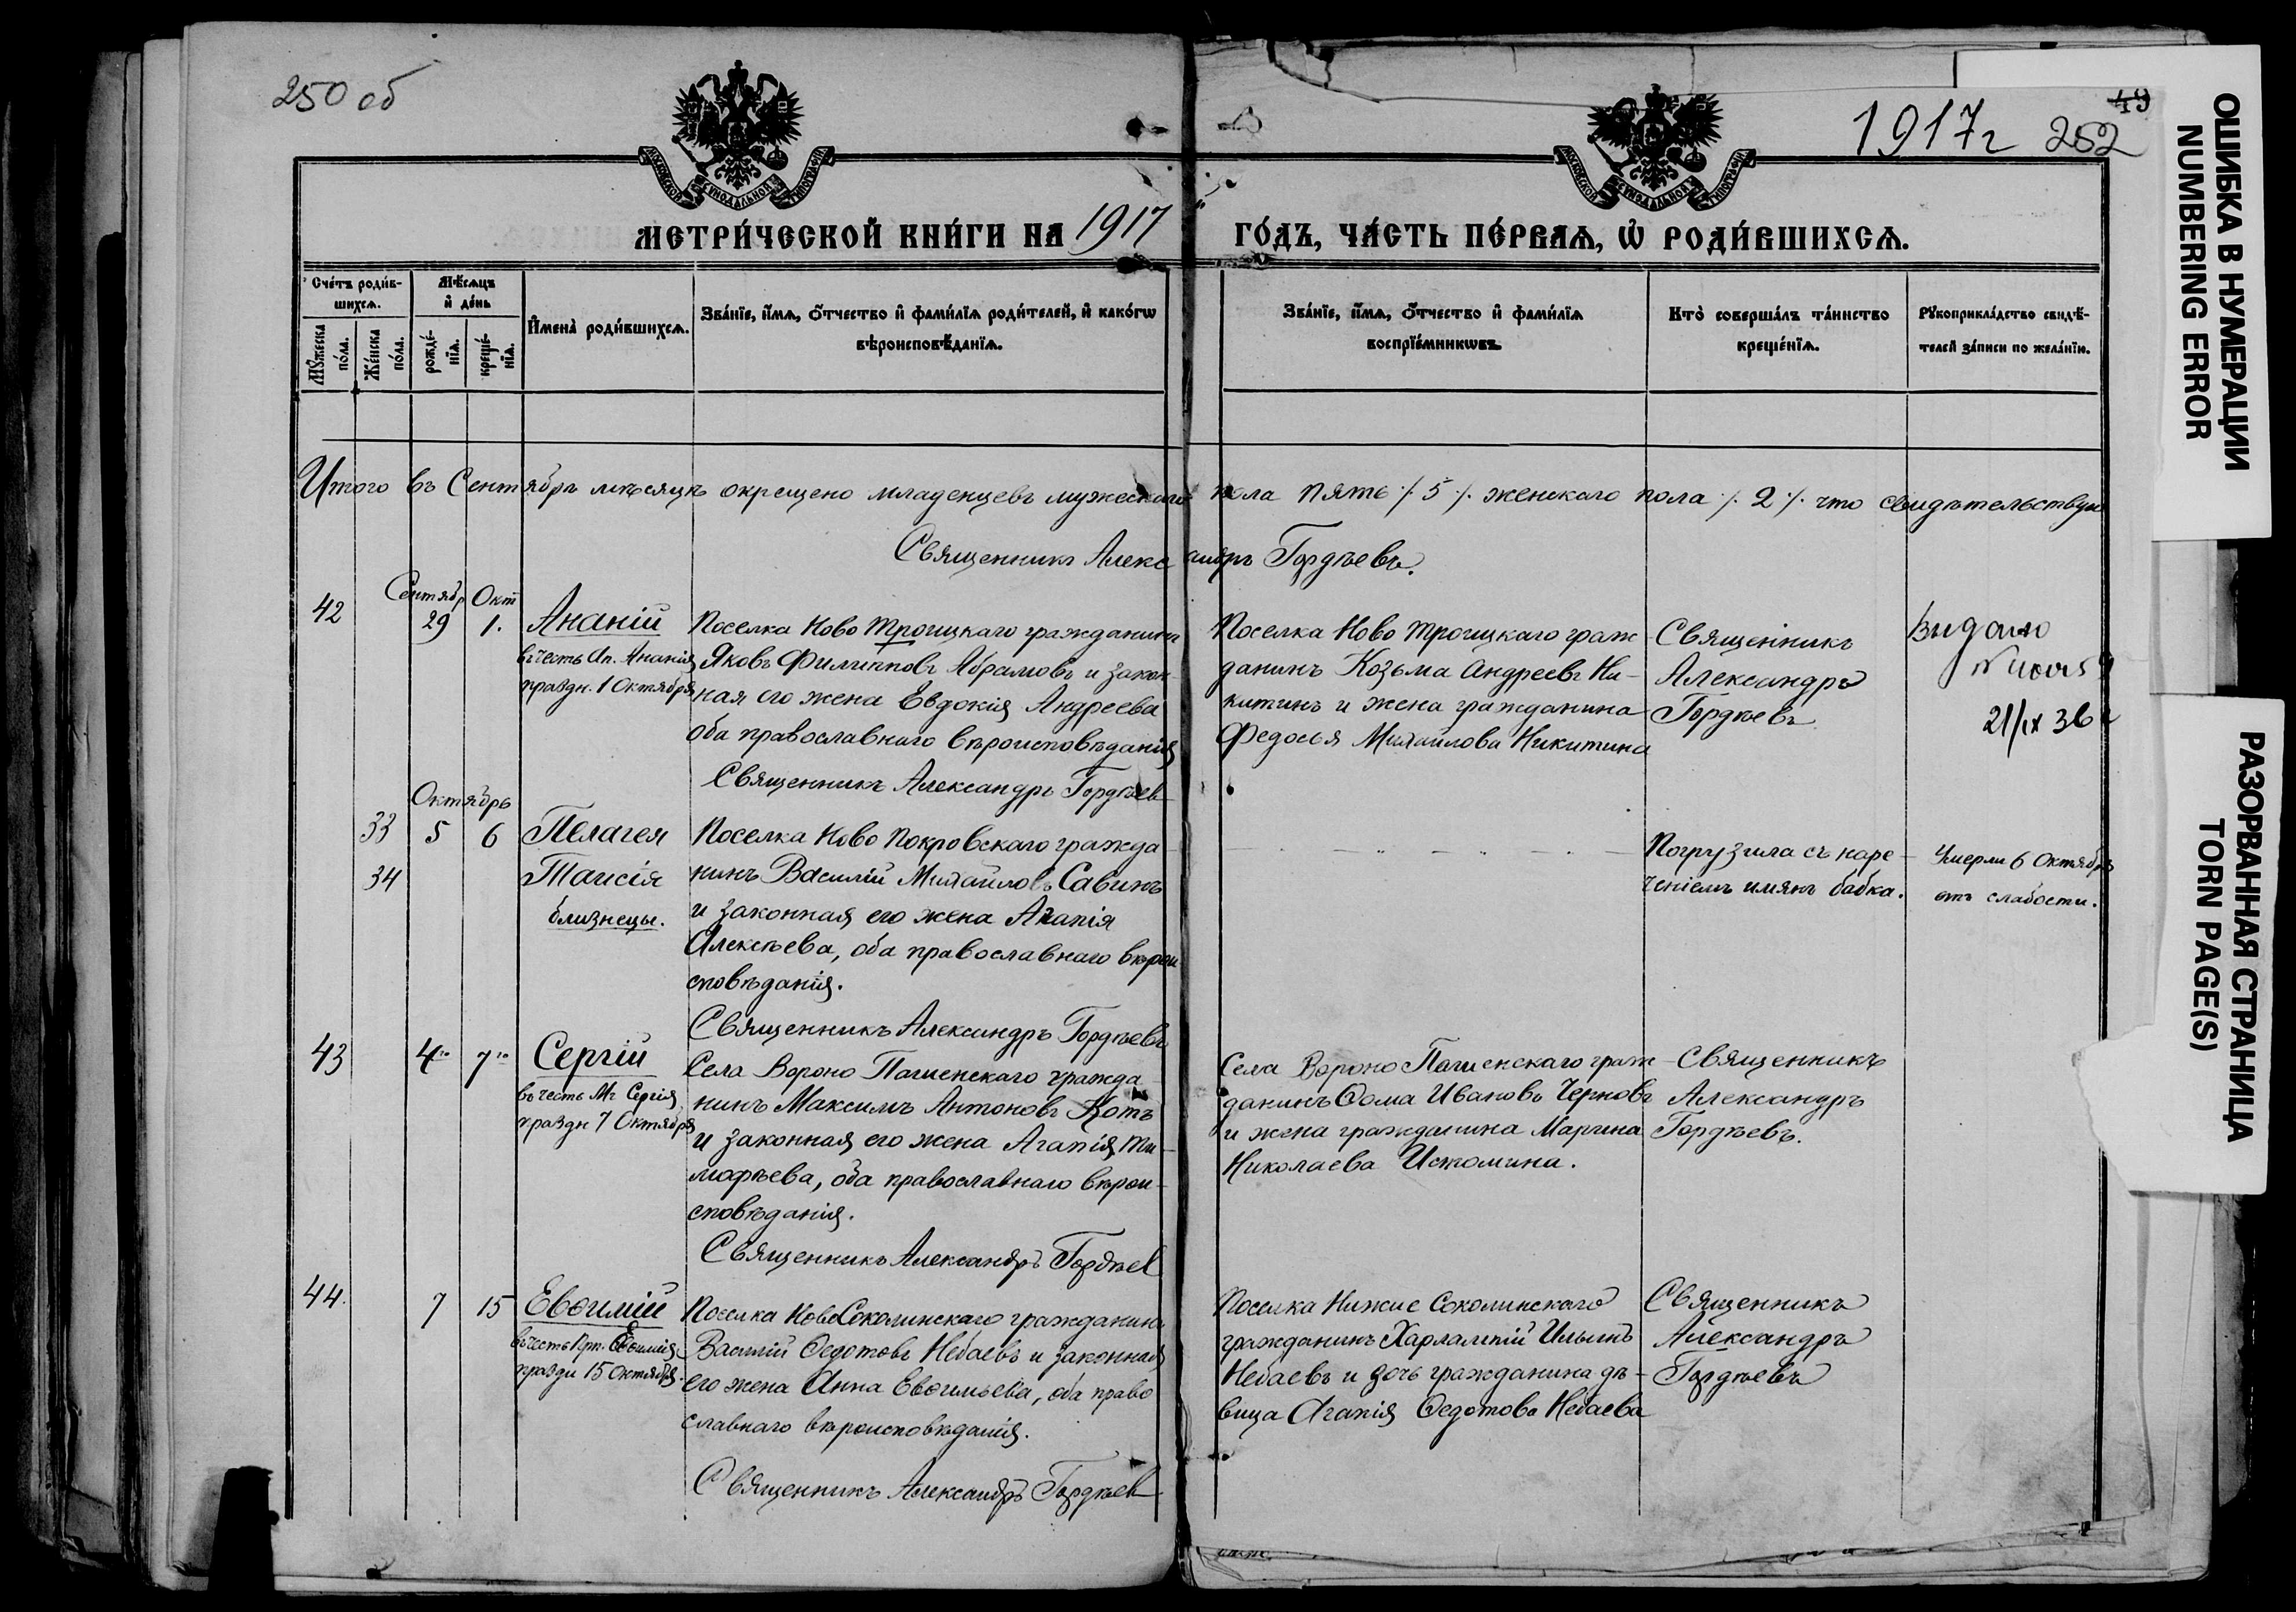 250 об
1917 г 252
49
МОСКОВСКОЙ СѴНОДАЛЬНОЙ ТИПОГРАФІИ
МОСКОВСКОЙ СѴНОДАЛЬНОЙ ТИПОГРАФІИ
МЕТРИ́ЧЕСКОЙ КНИ́ГИ НА 1917 ГО́ДЪ, ЧА́СТЬ ПЕ́РВАѦ, Ѡ҆ РОДИ́ВШИХСѦ.
Сче́тъ роди́в-
шихсѧ.
Мꙋ́жеска
по́ла.
Же́нска
по́ла.
Мѣ́сѧцъ
и҆ де́нь
рожде́-
нїѧ.
креще́-
нїѧ.
И҆мена̀ роди́вшихсѧ.
Зва́нїе, и҆́мѧ, ѻ҆́тчество и҆ фами́лїѧ роди́телей, и҆ како́гѡ
вѣроисповѣ́данїѧ.
Зва́нїе, и҆́мѧ, ѻ҆́тчество и҆ фами́лїѧ
воспрїе́мникѡвъ.
Кто̀ соверша́лъ та́инство
креще́нїѧ.
Рꙋкоприкла́дство свидѣ́-
телей за́писи по жела́нїю.
Итого въ Сентябрѣ мѣсяцѣ окрещено младенцевъ мужескаго пола пять ·/· 5 ·/· женскаго пола ·/· 2 ·/· что свидѣтельствую
Священникъ Александръ Гордѣевъ.
Сентябр Окт
42 29 1. Ананій
въ честь Ап. Ананія
праздн. 1 Октября
Поселка Ново Троицкаго гражданинъ
Яковъ Филипповъ Абрамовъ и закон-
ная его жена Евдокія Андреева
оба православнаго вѣроисповѣданія
Священникъ Александръ Гордѣев
Поселка Ново Троицкаго граж-
данинъ Козьма Андреевъ Ни-
китинъ и жена гражданина
Федосья Михайлова Никитина
Священникъ
Александръ
Гордѣевъ
Выдано
21/IX 36 г
Октябрь
33 5 6 Пелагея
34 Таисія
близнецы.
Поселка Ново Покровскаго гражда-
нинъ Василій Михайловъ Савинъ
и законная его жена Агапія
Алексѣева, оба православнаго вѣрои
сповѣданія.
Священникъ Александръ Гордѣевъ
Погрузила съ наре-
ченіемъ имянъ бабка.
Умерли 6 Октября
отъ слабости.
43 4го 7го Сергій
въ честь Мч Сергія
праздн 7 Октября
Села Вороно Пашенскаго гражда-
нинъ Максимъ Антоновъ Котъ
и законная его жена Агапія Ти-
мофѣева, оба православнаго вѣрои-
сповѣданія.
Священникъ Александръ Гордѣев
Села Вороно Пашенскаго граж-
данинъ Ѳома Ивановъ Черновъ
и жена гражданина Марина
Николаева Истомина.
Священникъ
Александръ
Гордѣевъ.
44. 7 15 Евѳимій
въ честь Прп. Евѳимія
праздн 15 Октября.
Поселка НовоСоколинскаго гражданинъ
Василій Ѳедотовъ Небаевъ и законная
его жена Анна Евѳимьева, оба право
славнаго вѣроисповѣданія.
Священникъ Александръ Гордѣев
Поселка Нижне Соколинскаго
гражданинъ Харлампій Ильинъ
Небаевъ и дочь гражданина дѣ-
вица Агапія Ѳедотова Небаева
Священникъ
Александръ
Гордѣевъ
ОШИБКА В НУМЕРАЦИИ
NUMBERING ERROR
РАЗОРВАННАЯ СТРАНИЦА
TORN PAGE(S)